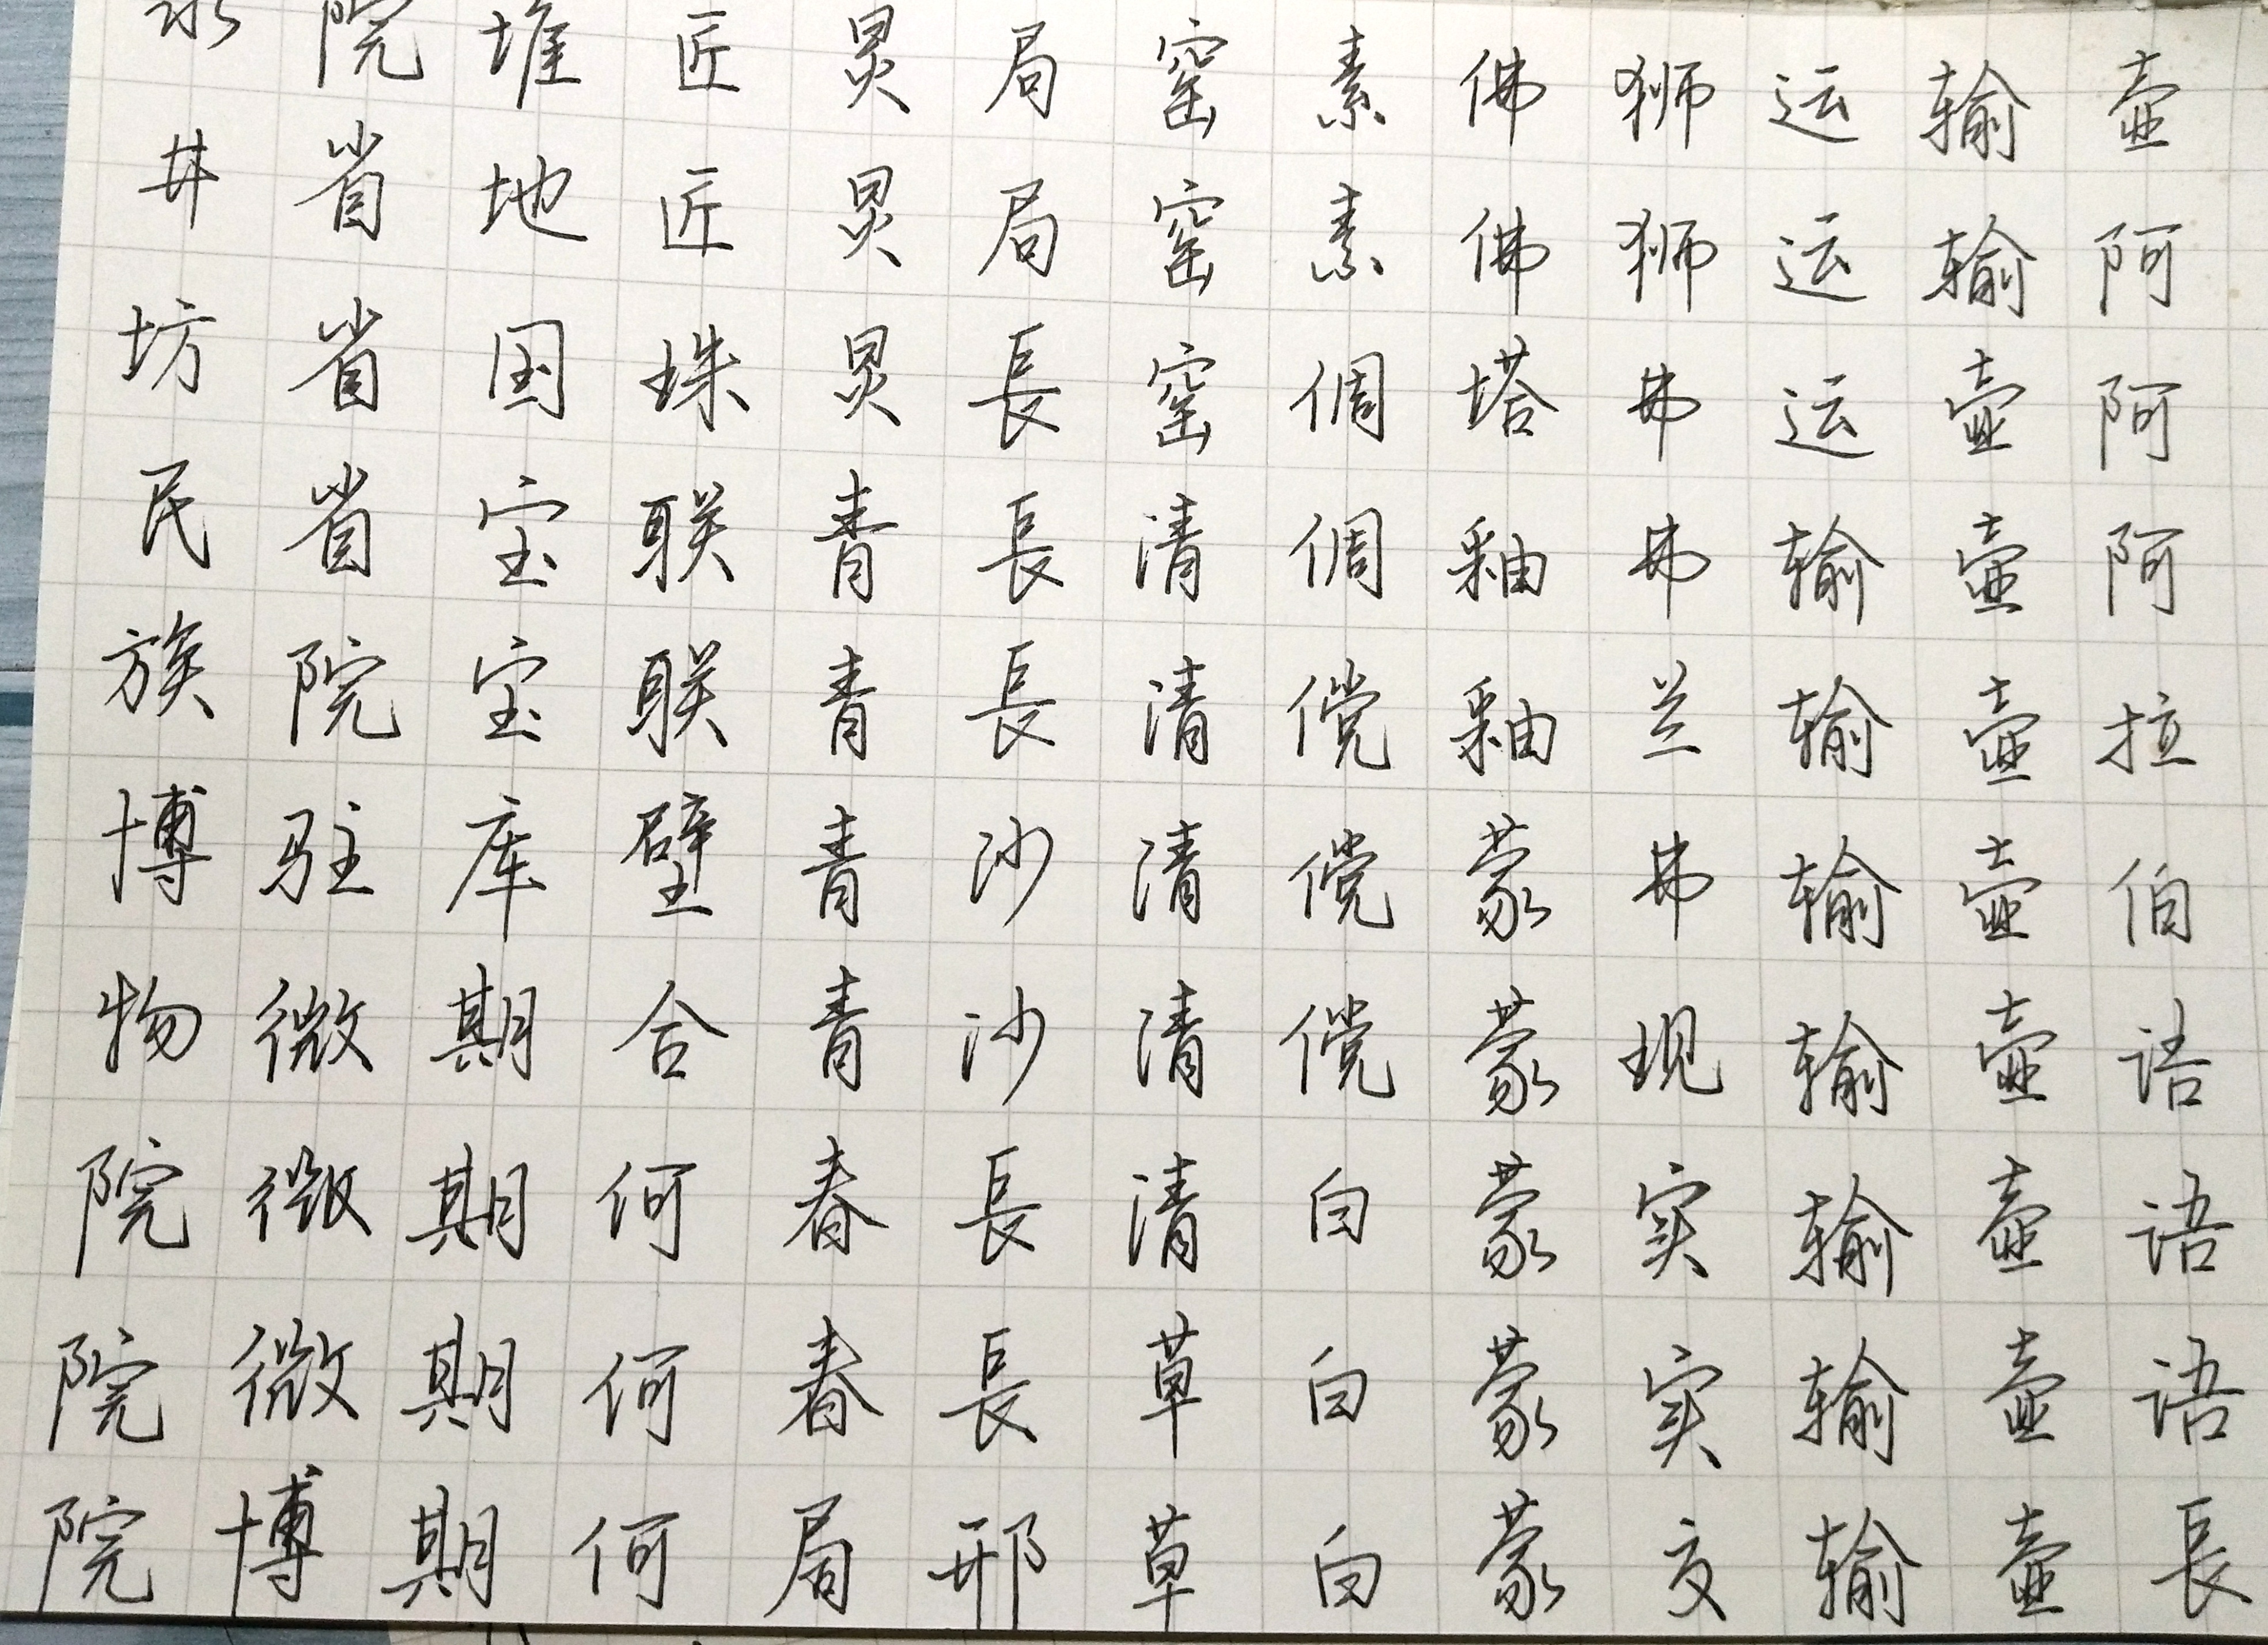 水井坊民族博物院院院
院省省省院驻微微微博
堆地国宝宝库期期期期
匠匠珠联联璧合何何何
炅炅炅青青青青春春局
局局長長長沙沙長長邢
窑窑窑清清清清清草草
素素倜倜傥傥傥白白白
佛佛塔釉釉蒙蒙蒙蒙蒙
狮狮弗弗兰弗现实实交
运运运输输输输输输输
输输壶壶壶壶壶壶壶壶
壶阿阿阿拉伯语语语長